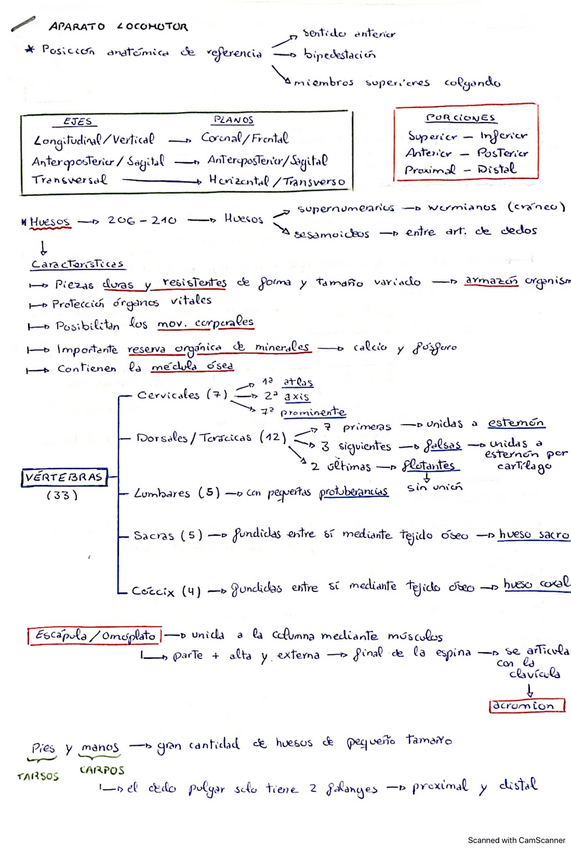 APARATO LOCOMOTOR
* Posición anatómica de referencia → sentido anterior
→ bipedestación
→ miembros superiores colgando
EJES PLANOS
Longitudinal/Vertical → Coronal/Frontal
Anteroposterior/Sagital → Anteroposterior/Sagital
Transversal → Horizontal/Transverso
PORCIONES
Superior - Inferior
Anterior - Posterior
Proximal - Distal
* Huesos → 206-210 → Huesos → supernumerarios → wormianos (cráneo)
→ sesamoideos → entre art. de dedos
Características
→ Piezas duras y resistentes de forma y tamaño variado → armazón organism
→ Protección órganos vitales
→ Posibilitan los mov. corporales
→ Importante reserva orgánica de minerales → calcio y fósforo
→ Contienen la médula ósea
VÉRTEBRAS
(33)
Cervicales (7) → 1ª atlas
→ 2ª axis
→ 7ª prominente
Dorsales/Torácicas (12) → 7 primeras → unidas a esternón
→ 3 siguientes → falsas → unidas a esternón por cartílago
→ 2 últimas → flotantes
↓
sin unión
Lumbares (5) → con pequeñas protuberancias
Sacras (5) → fundidas entre sí mediante tejido óseo → hueso sacro
Cóccix (4) → fundidas entre sí mediante tejido óseo → hueso coxal
Escápula/Omóplato → unida a la columna mediante músculos
→ parte + alta y externa → final de la espina → se articula
con la
clavícula
↓
acromion
Pies y manos → gran cantidad de huesos de pequeño tamaño
TARSOS CARPOS
→ el dedo pulgar solo tiene 2 falanges → proximal y distal
Scanned with CamScanner